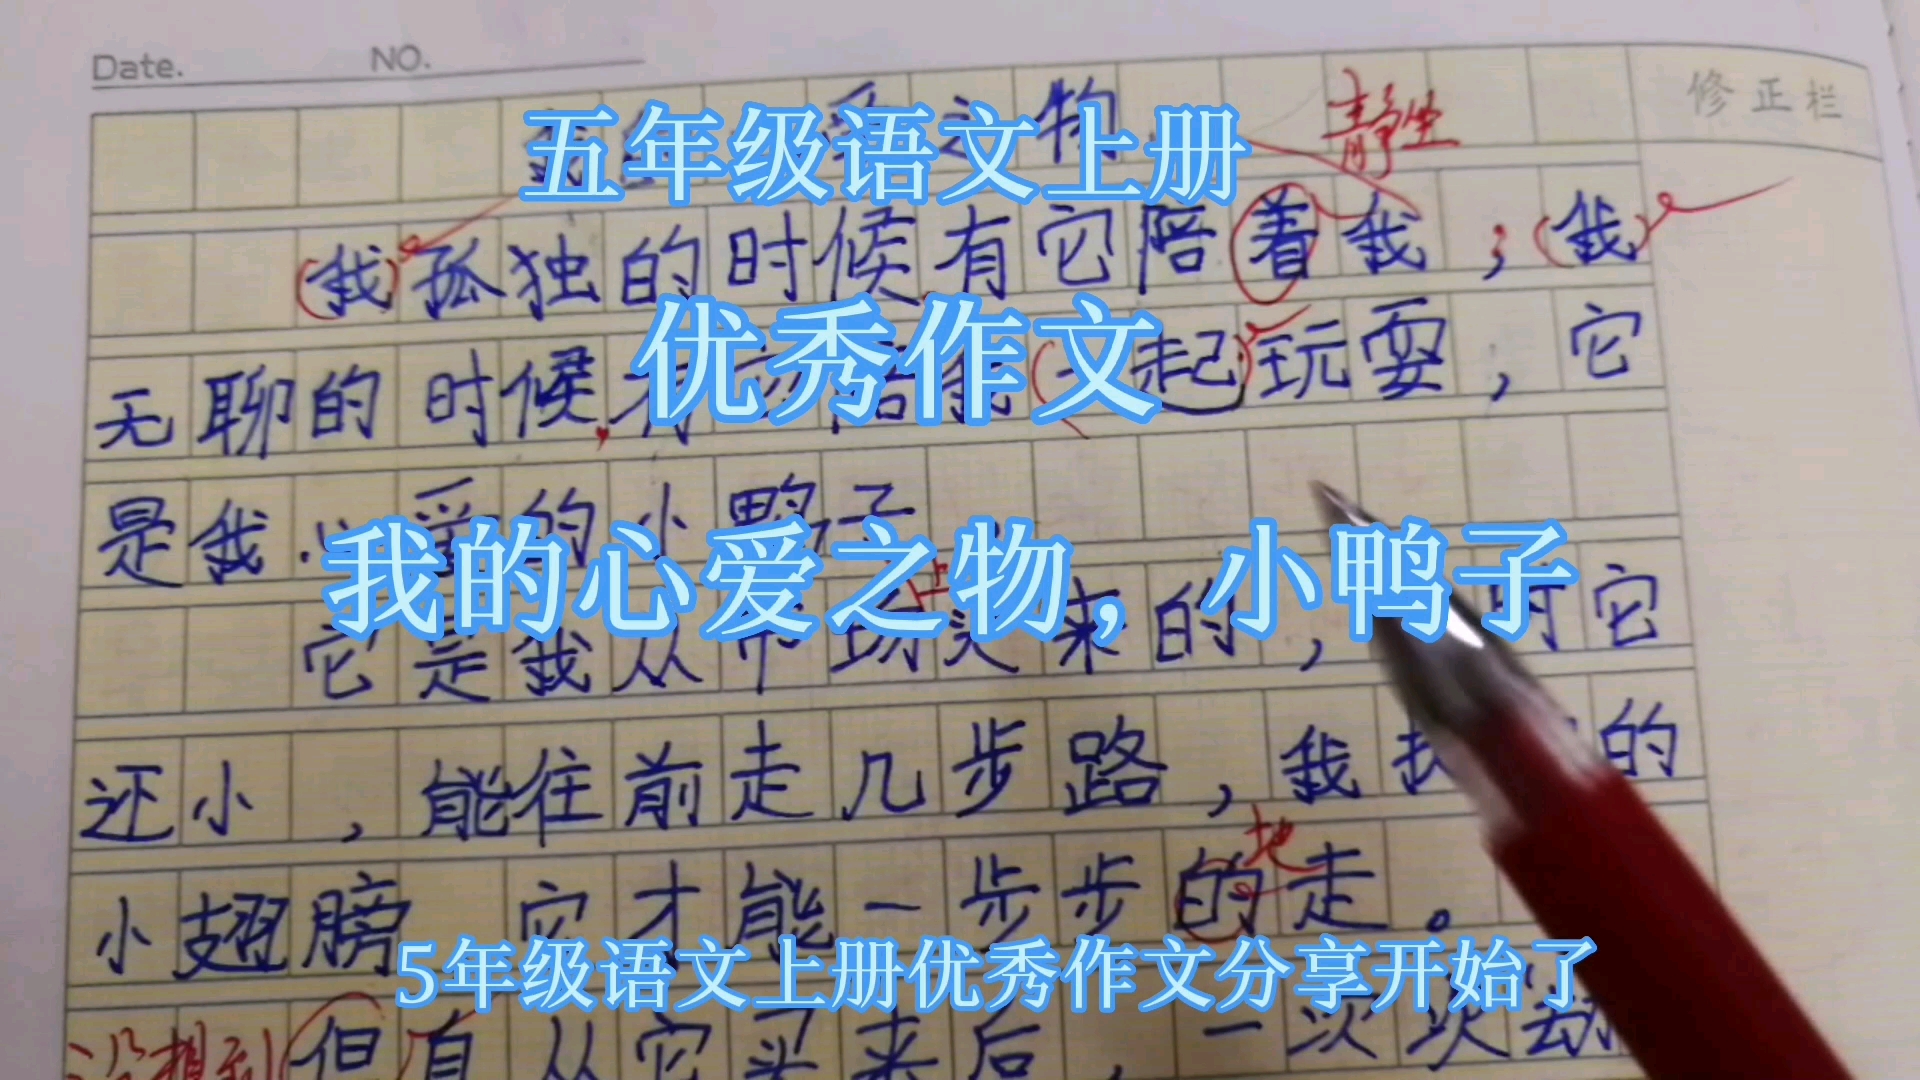 Date. NO.
修正栏
五年级语文上册
静坐
(我)孤独的时候,有它陪着我;(我)
优秀作文
无聊的时候,有它陪我(一起)玩耍,它
是我心爱的小鸭子
我的心爱之物，小鸭子
它是我从市场上买来的,时它
还小,能往前走几步路,我扶的
地
小翅膀 它才能一步步的走。
5年级语文上册优秀作文分享开始了
没想到但自从它买来后,一次次